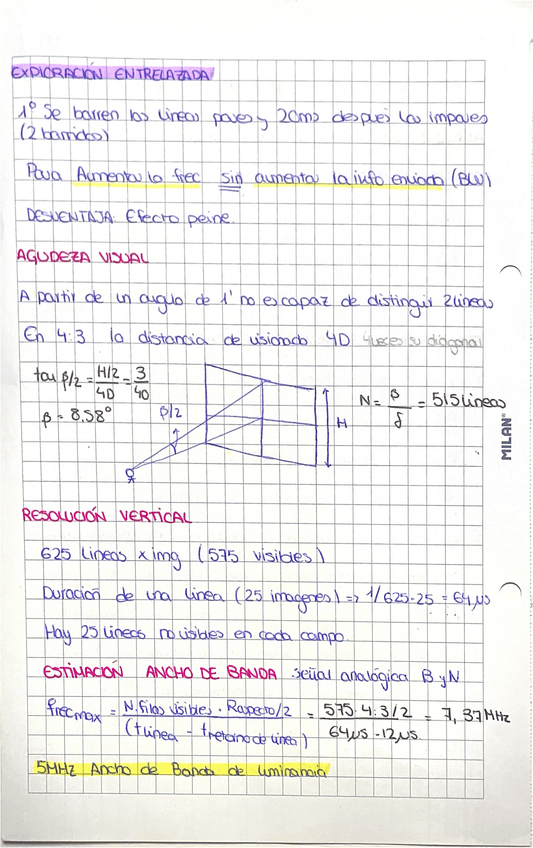 EXPLORACIÓN ENTRELAZADA
1º Se barren las líneas pares y 20ms después las impares
(2 barridos)
Para Aumentar la frec sin aumentar la info enviada (BW)
DESVENTAJA: Efecto peine.
AGUDEZA VISUAL
A partir de un angulo de 1' no es capaz de distinguir 2 lineas
En 4:3 la distancia de visionado 4D 4 veces su diagonal
tan β/2 = H/2 / 4D = 3/40
β = 8,58°
β/2
H
N = β/δ = 515 lineas
MILAN®
RESOLUCIÓN VERTICAL
625 lineas x img (575 visibles)
Duración de una linea (25 imagenes) => 1/625·25 = 64µs
Hay 25 Lineas no visibles en cada campo.
ESTIMACIÓN ANCHO DE BANDA señal analógica B y N
frecmax = N.filas visibles · Raspecto/2 / (tlinea - tretorno de linea) = 575·4:3/2 / 64µs-12µs = 7,37MHz
5MHz Ancho de Banda de luminancia